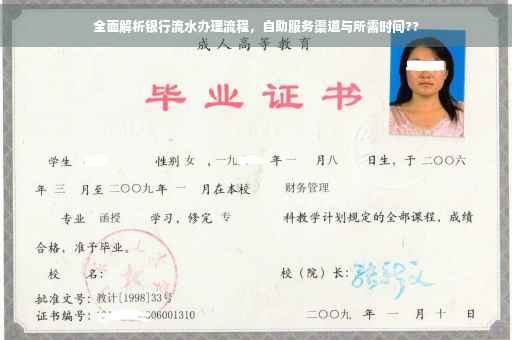 全面解析银行流水办理流程，自助服务渠道与所需时间??
成人高等教育
毕业证书
学生 性别 女 ，一九 年 一 月 八 日生，于 二〇〇六
年 三 月至 二〇〇九 年 一 月在本校 财务管理
专业 函授 学习，修完 专 科教学计划规定的全部课程，成绩
合格，准予毕业。
校 名： 校（院）长：
批准文号：教计[1998]33号
证书编号： 06001310 二〇〇九 年 一 月 十 日